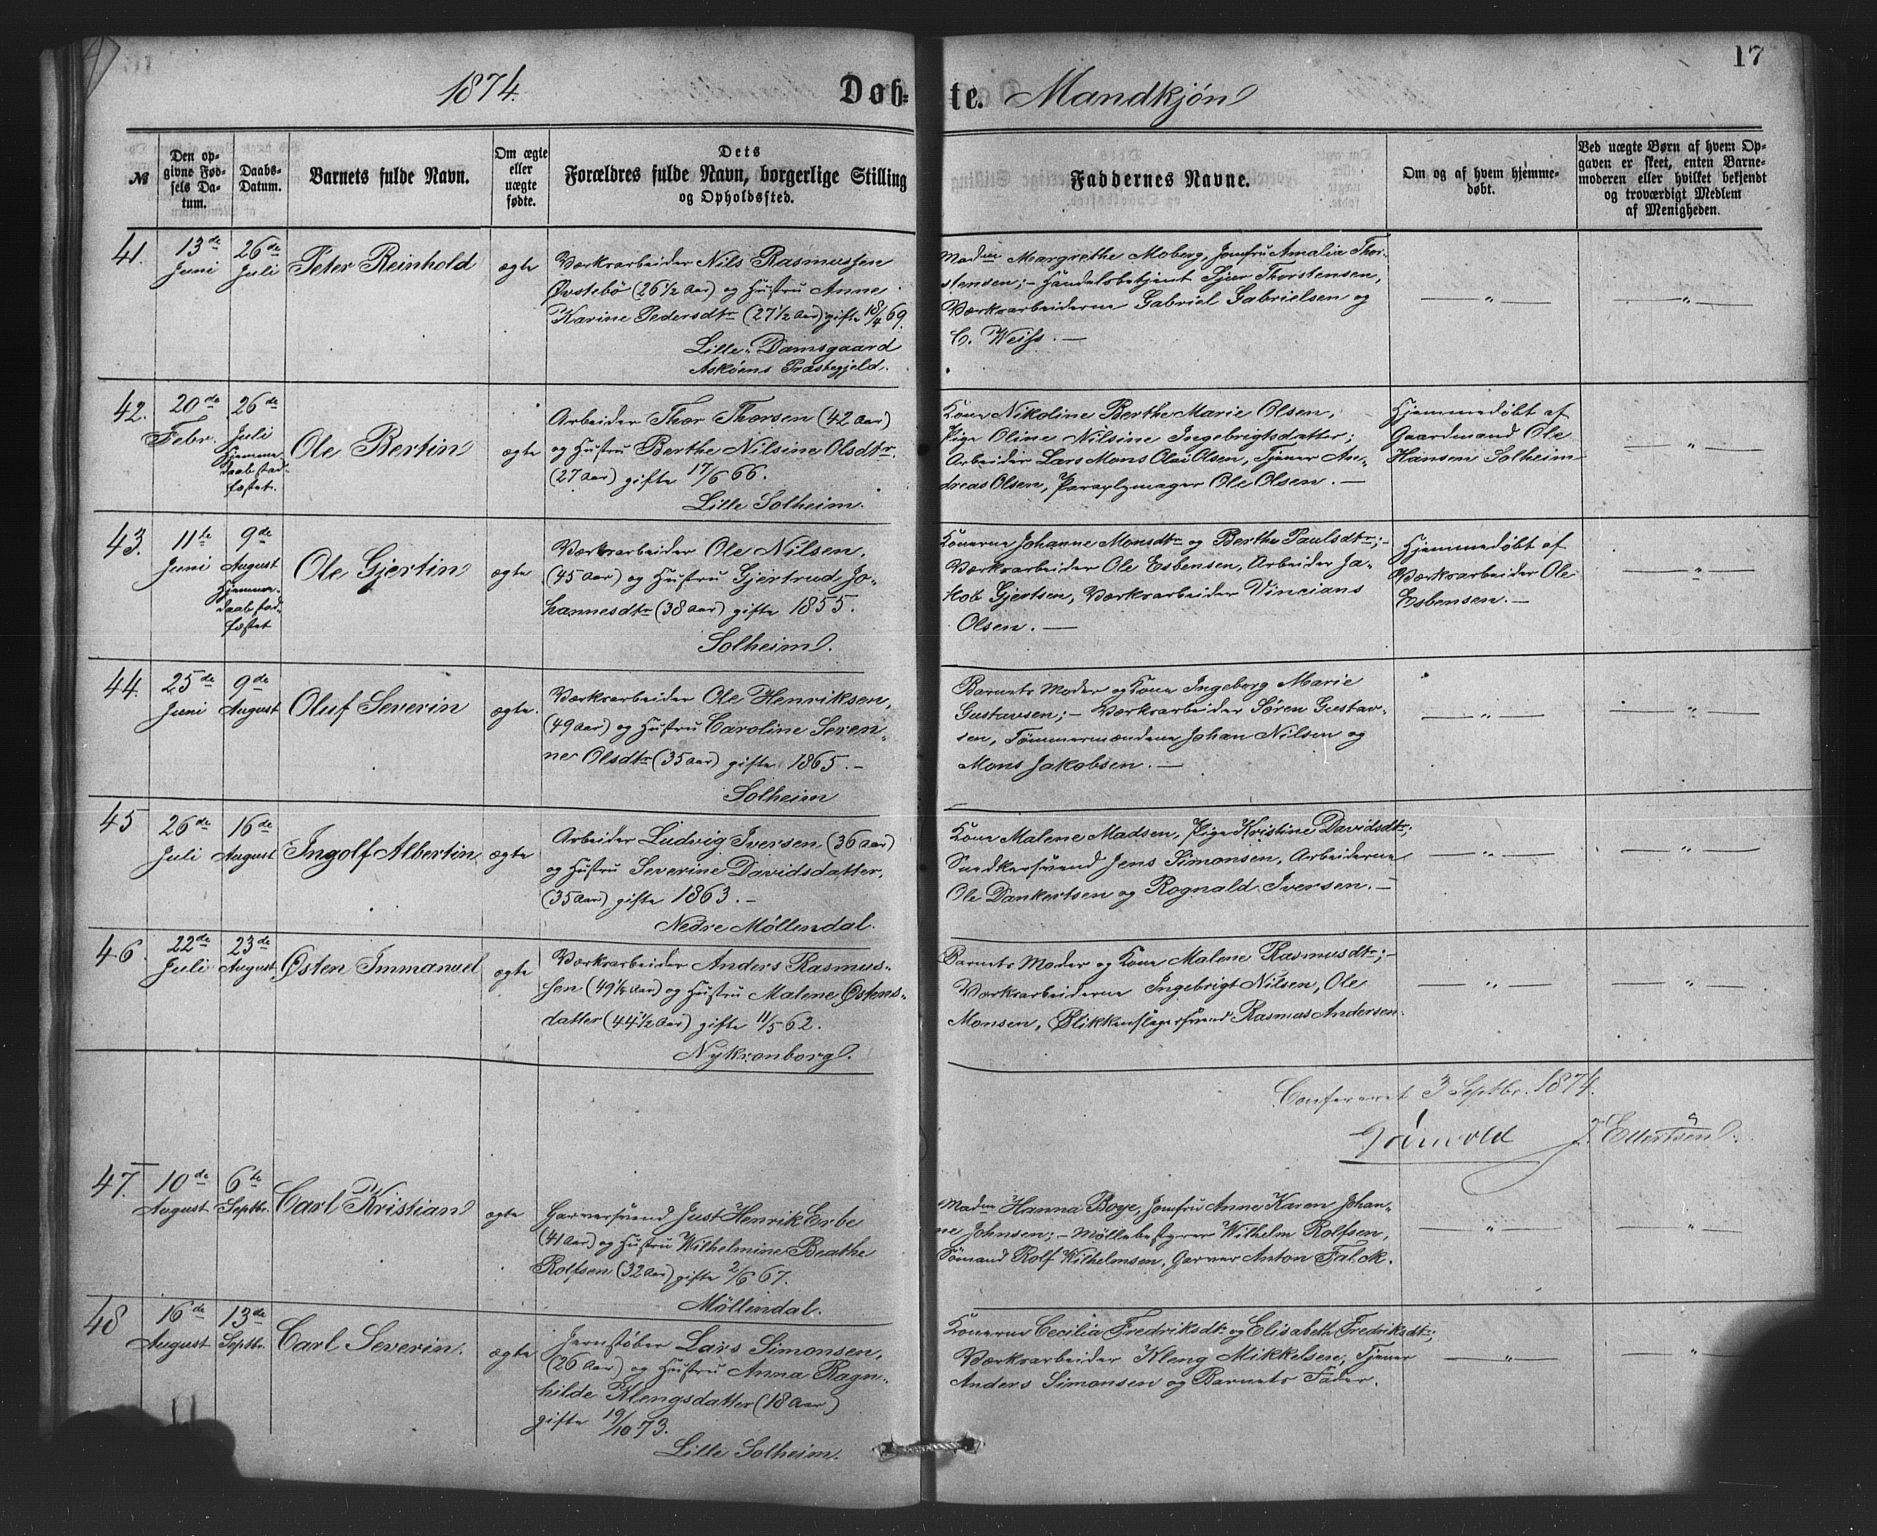 17
1874.
Døb-te. Mandkjøn
№
Den op-
givne Fød-
sels Da-
tum.
Daabs-
Datum.
Barnets fulde Navn.
Om ægte
eller
uægte
fødte.
Dets
Forældres fulde Navn, borgerlige Stilling
og Opholdssted.
Faddernes Navne.
Om og af hvem hjemme-
døbt.
Ved uægte Børn af hvem Op-
gaven er skeet, enten Barne-
moderen eller hvilket bekjendt
og troværdigt Medlem
af Menigheden.
41.
13de
Juni
26de
Juli
Peter Reinhold
ægte
Værksarbeider Nils Rasmussen
Øvstebö (26 1/2 Aar) og Hustru Anne
Karine Pedersdtr (27 1/2 Aar) gifte 18/4 69.
Lille-Damsgaard
Askøens Præstegjeld.
Madme Margrethe Moberg, Jomfru Amalia Thor-
stensen; - Handelsbetjent Sjur Thorstensen,
Værksarbeiderne Gabriel Gabrielsen og
C. Weiss. —
— „ —
— „ —
42.
20de
Febr.
26de
Juli
Hjemme-
daabstad-
fæstet.
Ole Bertin
ægte
Arbeider Thor Thorsen (42 Aar)
og Hustru Berthe Nilsine Olsdtr.
(27 Aar) gifte 17/6 66.
Lille Solheim.
Kone Nikoline Berthe Marie Olsen,
Pige Oline Nilsine Ingebrigtsdatter;
Arbeider Lars Mons Olai Olsen, Tjener An-
dreas Olsen, Paraplymager Ole Olsen. —
Hjemmedøbt af
Gaardmand Ole
Hansen Solheim
— „ —
43.
11te
Juni
9de
August
Hjemme-
daabstad-
fæstet
Ole Gjertin
ægte
Værksarbeider Ole Nilsen,
(45 Aar) og Hustru Gjertrud Jo-
hannesdtr (38 Aar) gifte 1855.
Solheim.
Konerne Johanne Monsdtr og Berthe Paulsdtr; -
Værksarbeider Ole Esbensen, Arbeider Ja-
kob Gjertsen, Værksarbeider Vincians
Olsen. —
Hjemmedøbt af
Værksarbeider Ole
Esbensen. —
— „ —
44.
25de
Juni
9de
August
Oluf Severin
ægte.
Værksarbeider Ole Henriksen,
(49 Aar) og Hustru Caroline Seren-
ne Olsdtr (35 Aar) gifte 1865. —
Solheim
Barnets Moder og Kone Ingeborg Marie
Gustavsen; - Værksarbeider Sören Gustav-
sen, Tømmermændene Johan Nilsen og
Mons Jakobsen. —
— „ —
— „ —
45
26de
Juli
16de
August
Ingolf Albertin
ægte
Arbeider Ludvig Iversen (36 Aar)
og Hustru Severine Davidsdatter,
(35 Aar) gifte 1863. —
Nedre Möllendal.
Kone Malene Madsen, Pige Kristine Davidsdtr;
Snedkersvend Jens Simonsen, Arbeiderne
Ole Dankertsen og Rognald Iversen. —
— „ —
— „ —
46.
22de
Juli
23de
August
Østen Immanuel
ægte
Værksarbeider Anders Rasmus-
sen (49 1/4 Aar) og Hustru Malene Østens-
datter (44 1/2 Aar) gifte 11/5 62.
Nykronborg.
Barnets Moder og Kone Malene Rasmusdtr; -
Værksarbeiderne Ingebrigt Nilsen, Ole
Monsen, Blikkenslagersvend Rasmus Andersen.
— „ —
— „ —
Confereret 3 Septbr. 1874.
Grimvold J. Ellertsen.
47.
10de
August
6te
Septbr.
Carl Kristian
ægte
Garversvend Just Henrik Erbe
(41 Aar) og Hustru Wilhelmine Beathe
Rolfsen (32 Aar) gifte 2/6 67.
Möllendal.
Madme Hanna Boge, Jomfru Anne Karen Johan-
ne Johnsen; - Møllebestyrer Wilhelm Rolfsen,
Sömand Rolf Wilhelmsen, Garver Anton Falck.
— „ —
— „ —
48
16de
August
13de
Septbr.
Carl Severin.
ægte
Jernstøber Lars Simonsen,
(26 Aar) og Hustru Anna Ragn-
hilde Klengsdatter (18 Aar)
gifte 19/10 73.
Lille Solheim.
Konerne Cecilia Fredriksdtr og Elisabeth Fredriksdtr;
Værksarbeider Kleng Mikkelsen, Tjener
Anders Simonsen og Barnets Fader.
— „ —
— „ —